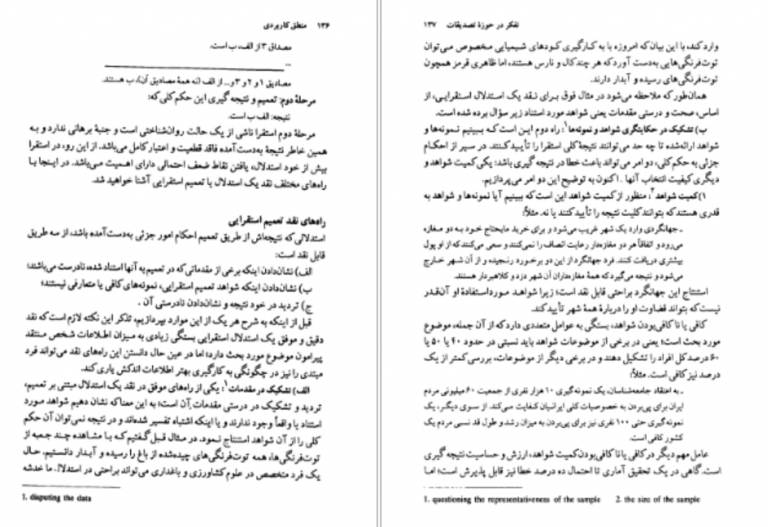 ۱۳۶ منطق کاربردی
مصداق ۳ از الف، ب است.
...
مصادیق ۱ و ۲ و ۳ و... از الف (نه همهٔ مصادیق آن)، ب هستند.
مرحلهٔ دوم: تعمیم و نتیجه گیری این حکم کلی که:
نتیجه: الف ب است.
مرحلهٔ دوم استقرا ناشی از یک حالت روان‌شناختی است و جنبهٔ برهانی ندارد و به
همین خاطر نتیجهٔ به‌دست‌آمده فاقد قطعیت و اعتبار کامل می‌باشد. از این رو، در استقرا
بیش از خود استدلال، یافتن نقاط ضعف احتمالی دارای اهمیت می‌باشد. در اینجا با
راه‌های مختلف نقد یک استدلال یا تعمیم استقرایی آشنا خواهید شد.
راه‌های نقد تعمیم استقرایی
استدلالی که نتیجه‌اش از طریق تعمیم احکام امور جزئی به‌دست‌آمده باشد، از سه طریق
قابل نقد است:
الف) نشان‌دادن اینکه برخی از مقدماتی که در تعمیم به آنها استناد شده نادرست می‌باشند؛
ب) نشان‌دادن اینکه شواهد تعمیم استقرایی، نمونه‌های کافی یا متعارفی نیستند؛
ج) تردید در خود نتیجه و نشان‌دادن نادرستی آن .
قبل از اینکه به شرح هر یک از این موارد بپردازیم، تذکر این نکته لازم است که نقد
دقیق و موفق یک استدلال استقرایی بستگی زیادی به میزان اطلاعات شخص منتقد
پیرامون موضوع مورد بحث دارد؛ اما در عین حال دانستن این راه‌های نقد می‌تواند فرد
مبتدی را نیز در چگونگی به کارگیری بهتر اطلاعات اندکش یاری کند.
الف) تشکیک در مقدمات¹: یکی از راه‌های موفق در نقد یک استدلال مبتنی بر تعمیم،
تردید و تشکیک در درستی مقدمات آن است؛ به این معناکه نشان دهیم شواهد مورد
استناد یا واقعاً وجود ندارند و یا اینکه اشتباه تفسیر شده‌اند و در نتیجه نمی‌توان آن حکم
کلی را از آن شواهد استنتاج نمود. در مثال قبل گفتیم که با مشاهده چند جعبه از
توت‌فرنگی‌ها، همه توت‌فرنگی‌های چیده‌شده از باغ را رسیده و آبدار دانستیم. حال
یک فرد متخصص در علوم کشاورزی و باغداری می‌تواند براحتی در استدلال ما خدشه
1. disputing the data
تفکر در حوزهٔ تصدیقات ۱۳۷
وارد کند، با این بیان که امروزه با به کارگیری کودهای شیمیایی مخصوص می‌توان
توت‌فرنگی‌هایی به‌دست آورد که هر چند کال و نارس هستند، اما ظاهری قرمز همچون
توت‌فرنگی‌های رسیده و آبدار دارند.
همان‌طور که ملاحظه می‌شود در مثال فوق برای نقد یک استدلال استقرایی، از
اساس، صحت و درستی مقدمات یعنی شواهد مورد استناد زیر سؤال برده شده است.
ب) تشکیک در حکایتگری شواهد و نمونه‌ها¹: راه دوم این است که ببینیم نمونه‌ها و
شواهد ارائه‌شده تا چه حد می‌توانند نتیجهٔ کلی استقرا را تأیید کنند. در سیر از احکام
جزئی به حکم کلی، دو امر می‌تواند باعث خطا در نتیجه گیری باشد: یکی کمیت شواهد و
دیگری کیفیت انتخاب آنها . اکنون به توضیح این دو امر می‌پردازیم.
۱) کمیت شواهد²: منظور از کمیت شواهد این است که ببینیم آیا نمونه‌ها و شواهد به
قدری هستند که بتوانند کلیت نتیجه را تأیید کنند یا نه. مثلاً:
ـ جهانگردی وارد یک شهر غریب می‌شود و برای خرید مایحتاج خود به دو مغازه
می‌رود و اتفاقاً هر دو مغازه‌دار رعایت انصاف را نمی‌کنند و سعی می‌کنند که از او پول
بیشتری دریافت کنند. فرد جهانگرد از این دو برخورد رنجیده و از آن شهر خارج
می‌شود و نتیجه می‌گیرد که همهٔ مغازه‌داران آن شهر دزد و کلاهبردار هستند.
استنتاج این جهانگرد براحتی قابل نقد است؛ زیرا شواهد مورد استفادهٔ او آن‌قدر
نیست که بتواند قضاوت او را دربارهٔ همهٔ شهر تأیید کند.
کافی یا ناکافی‌بودن شواهد، بستگی به عوامل متعددی دارد که از آن جمله، موضوع
مورد بحث است؛ یعنی در برخی از موضوعات شواهد باید نسبتی در حدود ۴۰ یا ۵۰ یا
۶۰ درصد کل افراد را تشکیل دهند و در برخی دیگر از موضوعات، بررسی کمتر از یک
درصد نیز کافی است. مثلاً:
ـ به اعتقاد جامعه‌شناسان، یک نمونه‌گیری ۱۰ هزار نفری از جمعیت ۶۰ میلیونی مردم
ایران برای پی‌بردن به خصوصیات کلی ایرانیان کفایت می‌کند. از سوی دیگر، یک
نمونه‌گیری حتی ۱۰۰ نفری نیز برای پی‌بردن به میزان رشد و طول قد نسبی مردم یک
کشور کافی است.
عامل مهم دیگر در کافی یا ناکافی‌بودن کمیت شواهد، ارزش و حساسیت نتیجه گیری
است. گاهی در یک تحقیق آماری تا احتمال ده درصد خطا نیز قابل پذیرش است؛ اما
1. questioning the representativeness of the sample 2. the size of the sample